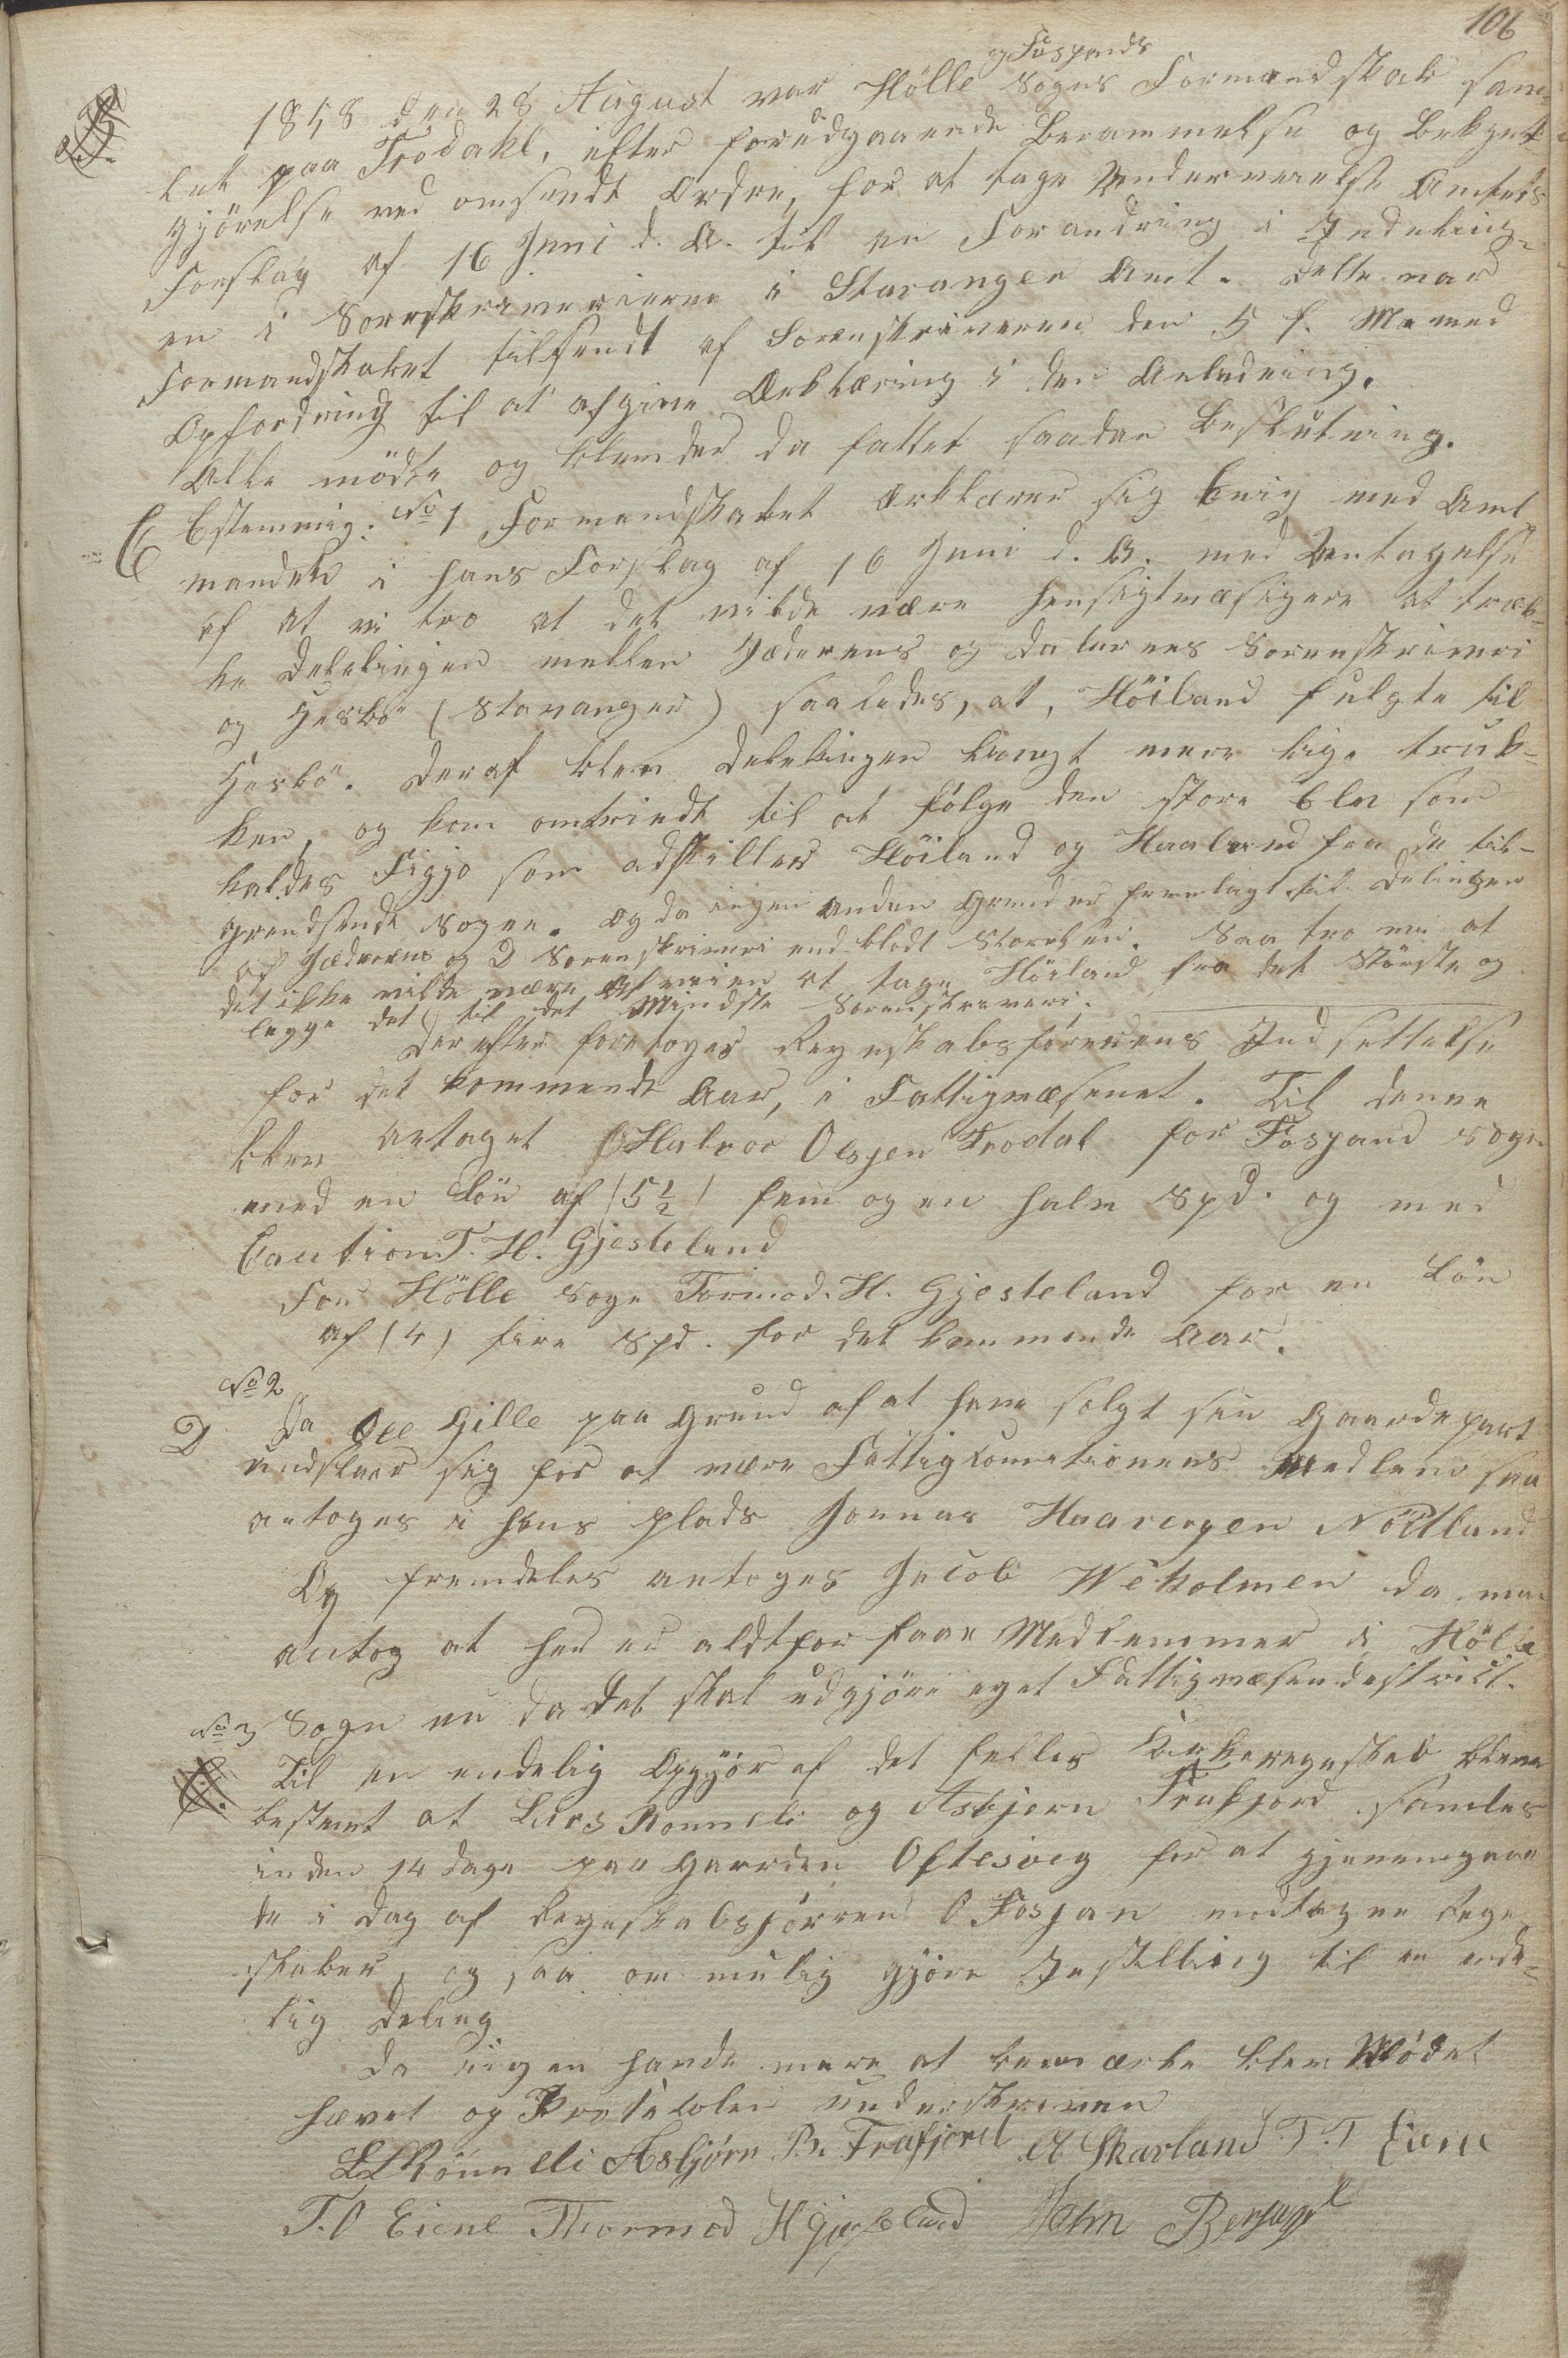 106
og Fospands
1858 den 28 August var Hölle Sogns Formandskab sam-
let paa Trodahl, efter forudgaaende Berammelse og Bekjent
gjörelse ved omsendt Ordre, for at tage Underverelse Amtets
Forslag af 16 Juni d. A. til en Forandring i Indeling-
en i Sorenskriverierne i Stavanger Amt. Dette var
Formandskabet tilsendt af Sorenskriveren den 5 f. M. med
Opfordring til at afgive Erklæring i den Anledning.
Alle mödte og blev der da fattet saadan Beslutning.
C Bstemmig: No 1 Formandskabet Erklærer sig Enig med Amt
manden i hans Forslag af 16 Juni d. A. med Untagelse
af at vi tro at det vilde være hensigtmæsigere at træk-
ke Delelingen mellem Jæderens og Dalernes Sorenskriveri
og Hesbö (Stavanger) saaledes, at, Höiland fulgte til
Hesbö. Deraf blev Delelingen langt mere lige truk-
ken, og kom omtrindt til at fölge den store Elv som
kaldes Figjo som adskiller Höiland og Haaland fra de til-
grendsende Sogne. Og da ingen anden Grund er fremlagt til Delingen
af Jæderens og D Sorenskriveri end blodt Storelsen. Saa tro vi at
det ikke vilde være af veien at tage Höiland fra det Störste og
legge det til det Mindste Sorenskriveri.
Derefter foretoges Regnskabsförerens Indsettelse
for det kommende Aar, i Fattigvæsenet. Til denne
blev antaget Halvor Olsen Trodal for Fospand Sogn
med en Lön af (5½) fem og en halv Spd. og med
Caution T. H. Gjesteland
For Hölle Sogn Tormod. H. Gjesteland for en Lön
af (4) fire Spd. for det kommende Aar.
No 2
D Da Ole Gille paa Grund af at have solgt sin Gaardepart
undslaar sig for at være Fattigkomitionens Medlem saa
antoges i hans plads Jonnas Haavorsen Nödland
Og fremdeles antoges Jacob Weholmen da man
antog at her er aldtfor faae Medlemmer i Hölle
No 3 Sogn nu da det skal udgjöre eget Fattigvæsendestrict.
Til en endelig Opgjör af det felles Kirkeregnskab blev
bestemt at Lars Rönneli og Asbjorn Frafjord samles
inden 14 Dage paa Gaarden Oftesvig for at gjennemgaae
de i Dag af Regnskabsförren O Fosjan modtagne Regn
skaber, og saa om mulig gjöre Instilling til en ende-
lig Deling
Da ingen havde mere at bemærke blev Mödet
hævet og Protokolen underskreven
LL Rönneli Asbjörn B. Frafjord A Skarland T. T Eiene
T. O Eiene Thormod H Gjesteland John Bersagel